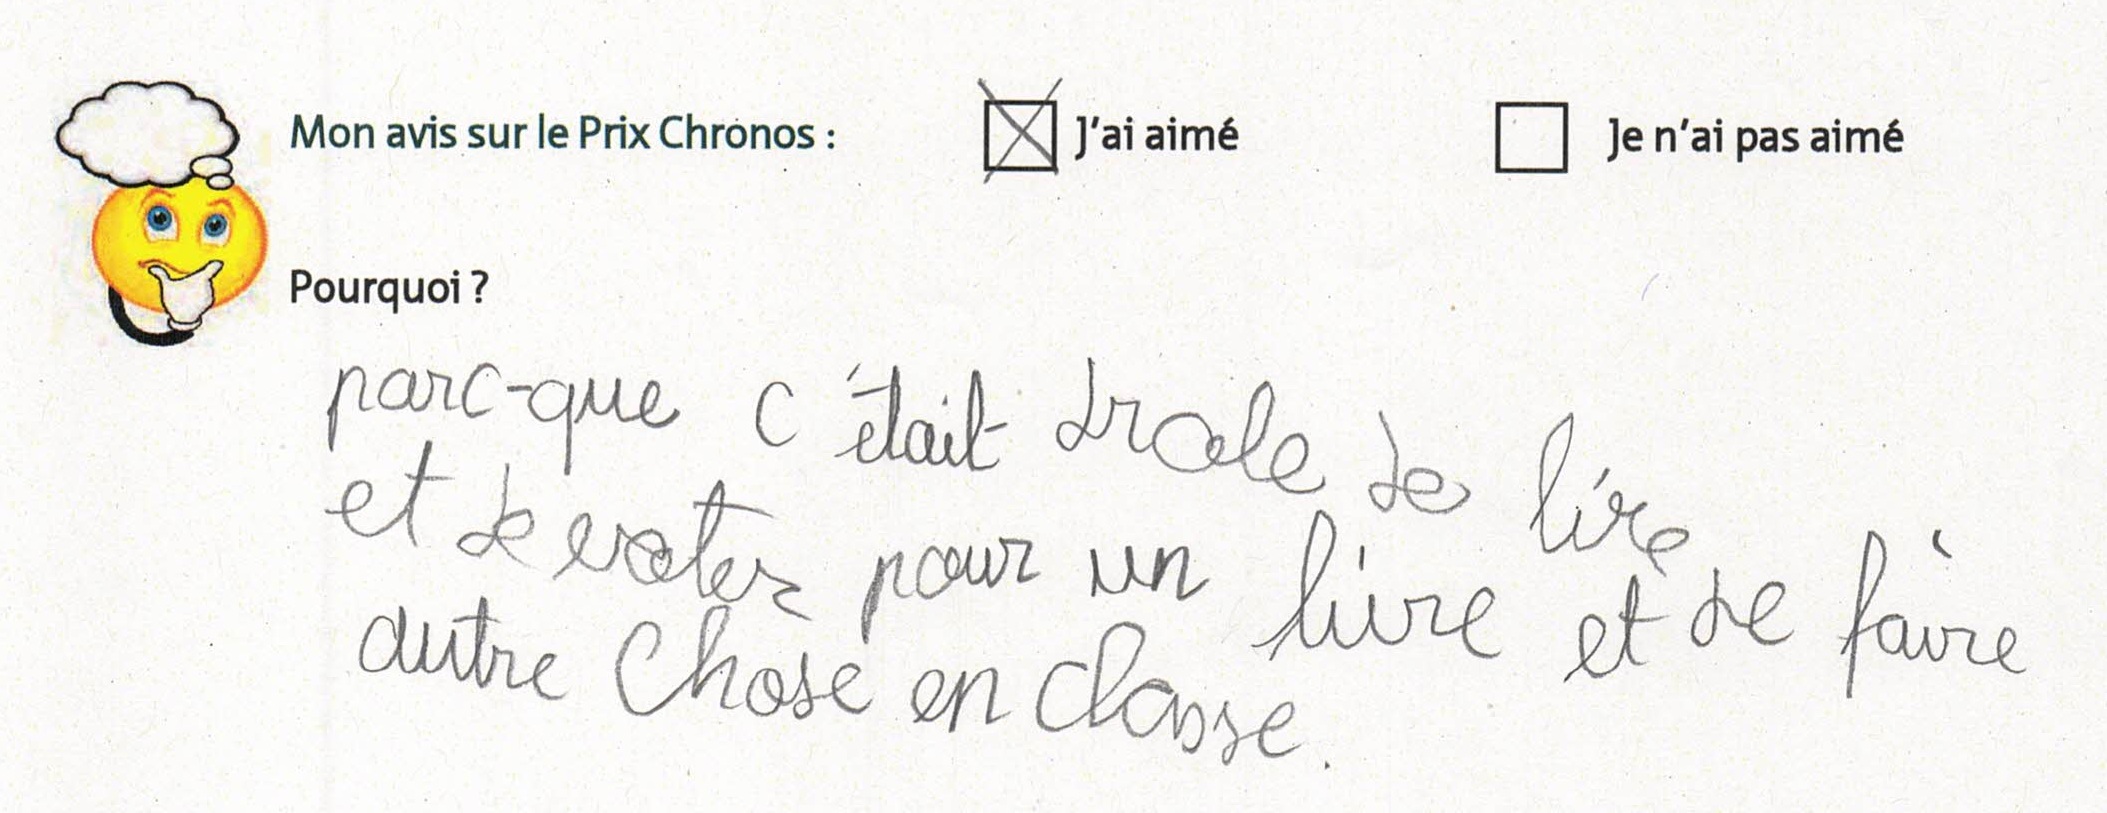 Mon avis sur le Prix Chronos : J'ai aimé Je n'ai pas aimé
Pourquoi ?
parc-que c'était drole de lire
et de voter pour un livre et de faire
autre chose en classe.